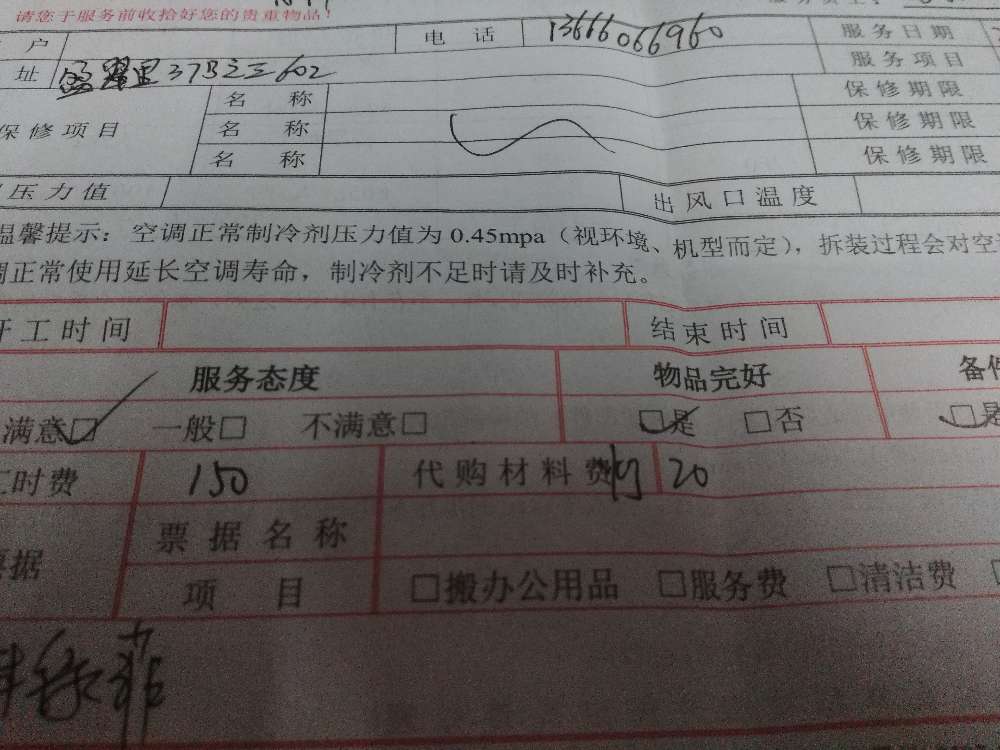 请您于服务前收拾好您的贵重物品!
户 电 话 13666066960 服务日期
址 37号之三602 服务项目
名 称 保修期限
保修项目 名 称 保修期限
名 称 保修期限
压力值 出风口温度
温馨提示：空调正常制冷剂压力值为 0.45mpa（视环境、机型而定），拆装过程会对空
调正常使用延长空调寿命，制冷剂不足时请及时补充。
开工时间 结束时间
服务态度 物品完好 备件
满意□ 一般□ 不满意□ □是 □否 □是
工时费 150 代购材料费 20
票据名称
票据
项 目 □搬办公用品 □服务费 □清洁费